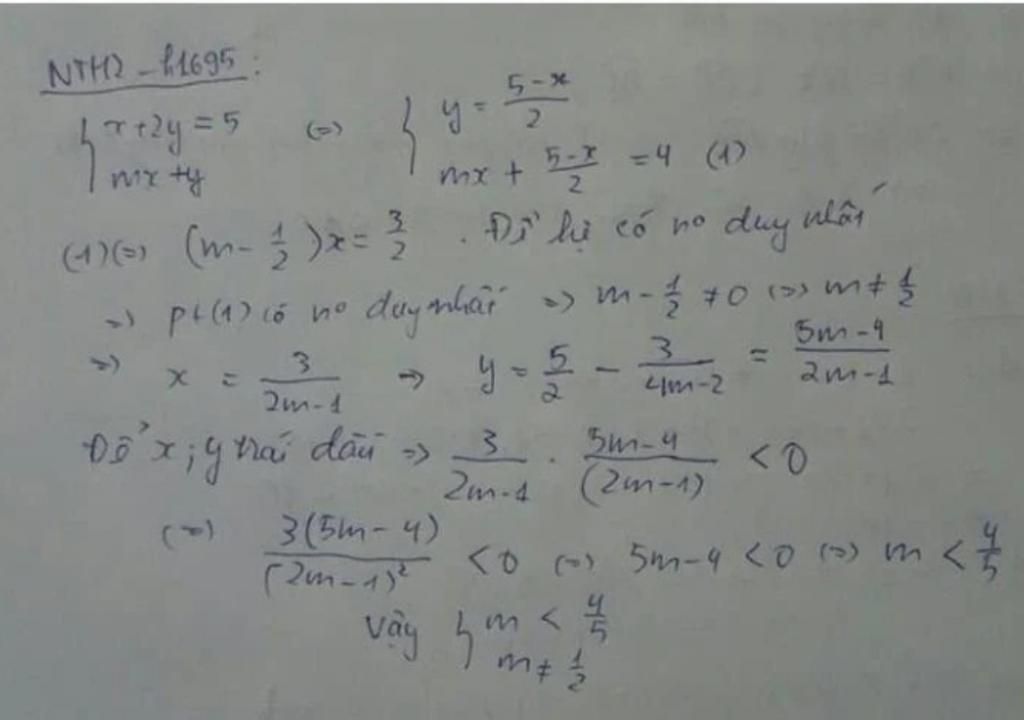 NTH2 - h1695:
{ x + 2y = 5 (=) { y = (5-x)/2
{ mx + y { mx + (5-x)/2 = 4 (1)
(1) (=) (m - 1/2)x = 3/2 . Để hệ có no duy nhất
=> pt (1) có no duy nhất => m - 1/2 ≠ 0 (=) m ≠ 1/2
=> x = 3/(2m-1) => y = 5/2 - 3/(4m-2) = (5m-4)/(2m-1)
Để x; y trái dấu => 3/(2m-1) . (5m-4)/(2m-1) < 0
(=) 3(5m-4)/(2m-1)² < 0 (=) 5m-4 < 0 (=) m < 4/5
Vậy { m < 4/5
{ m ≠ 1/2